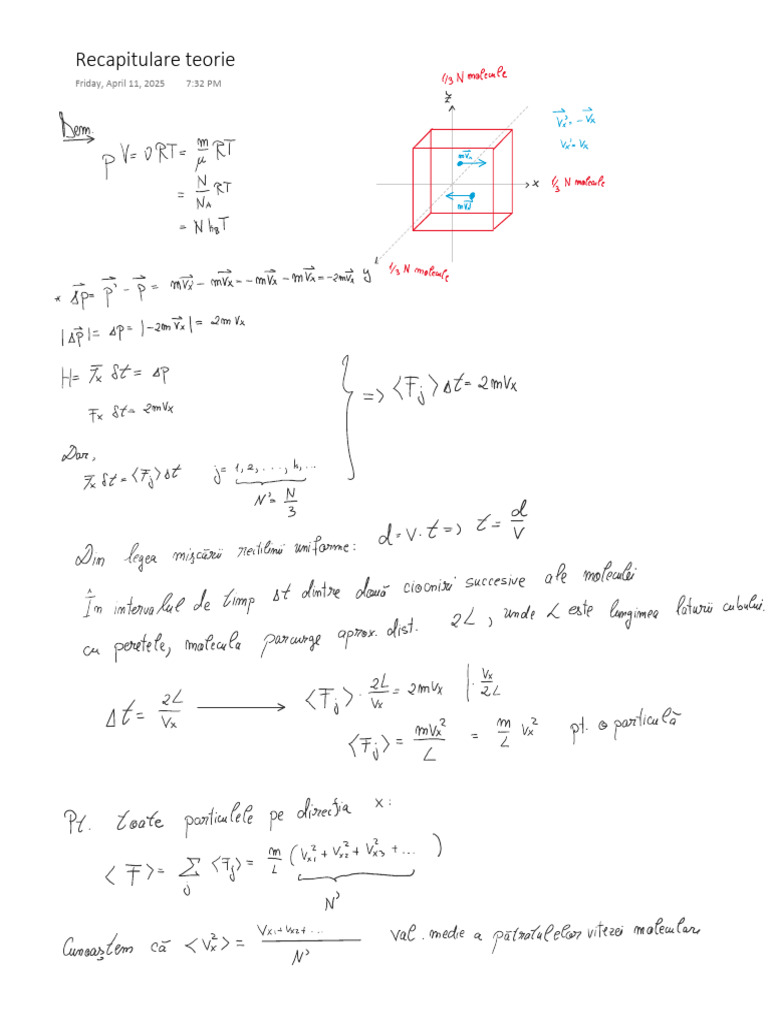 Recapitulare teorie
Friday, April 11, 2025 7:32 PM
Dem.
pV = νRT = m/μ RT
= N/N_A RT
= N k_B T
1/3 N molecule
z
m v⃗x
m v⃗x'
x
1/3 N molecule
y
1/3 N molecule
v⃗x' = -v⃗x
vx' = vx
* Δp⃗ = p⃗' - p⃗ = mv⃗x' - mv⃗x = -mv⃗x - mv⃗x = -2mv⃗x
|Δp⃗| = Δp = |-2mv⃗x| = 2mvx
H = Fx δt = Δp
Fx δt = 2mvx
Dar,
Fx δt = ⟨Fj⟩Δt j = 1, 2, ..., k, ...
N' = N/3
} => ⟨Fj⟩Δt = 2mvx
Din legea mișcării rectilinii uniforme: d = v · t => t = d/v
În intervalul de timp Δt dintre două ciocniri succesive ale moleculei
cu peretele, molecula parcurge aprox. dist. 2L, unde L este lungimea laturii cubului.
Δt = 2L/vx → ⟨Fj⟩ · 2L/vx = 2mvx | · vx/2L
⟨Fj⟩ = mvx²/L = m/L vx² pt. o particulă
Pt. toate particulele pe direcția x:
⟨F⟩ = Σj ⟨Fj⟩ = m/L (vx1² + vx2² + vx3² + ...)
N'
Cunoaștem că ⟨vx²⟩ = vx1 + vx2 + .../N' val. medie a pătratelor vitezei moleculare